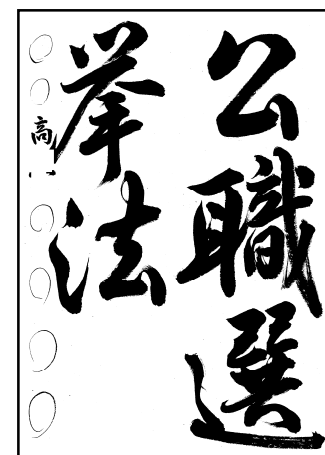 公職選
挙法
○○高一○○○○